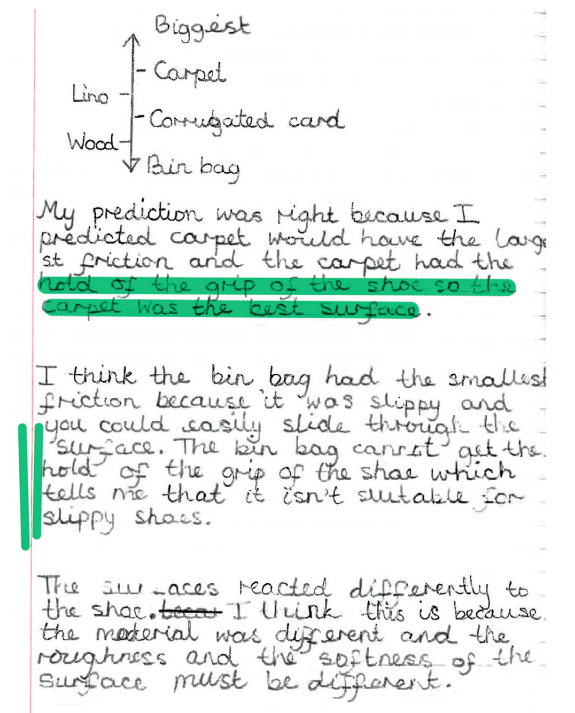 Biggest
Carpet
Lino
Corrugated card
Wood
Bin bag
My prediction was right because I
predicted carpet would have the large
st friction and the carpet had the
hold of the grip of the shoe so the
carpet was the best surface.
I think the bin bag had the smallest
friction because it was slippy and
you could easily slide through the
surface. The bin bag cannot get the
hold of the grip of the shoe which
tells me that it isn't suitable for
slippy shoes.
The surfaces reacted differently to
the shoe. becau I think this is because
the material was different and the
roughness and the softness of the
surface must be different.